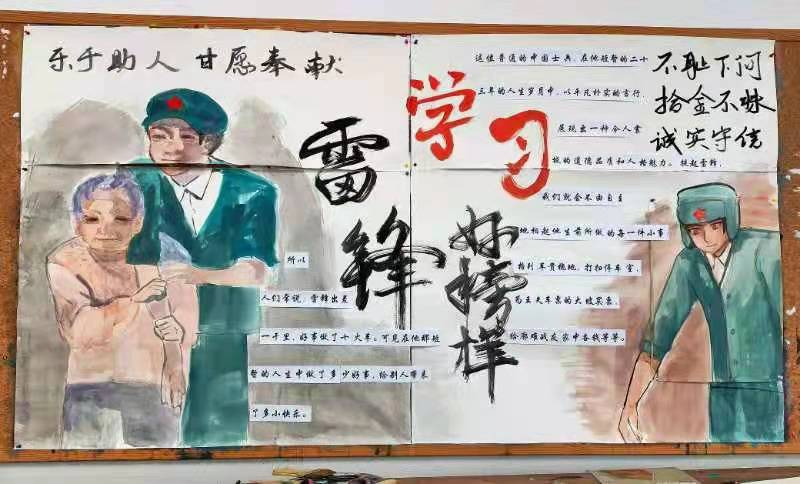 乐于助人 甘愿奉献
学习
雷锋
好榜样
不耻下问
拾金不昧
诚实守信
这位普通的中国士兵，在他短暂的二十
三年的人生岁月中，以平凡朴实的言行，
展现出一种令人景
我们就会不由自主
地想起他生前所做的每一件小事
给别人带来
所以
人们常说，雷锋出差
一千里，好事做了十火车。可见在他那短
暂的人生中做了多少好事，给别人带来
了多小快乐。